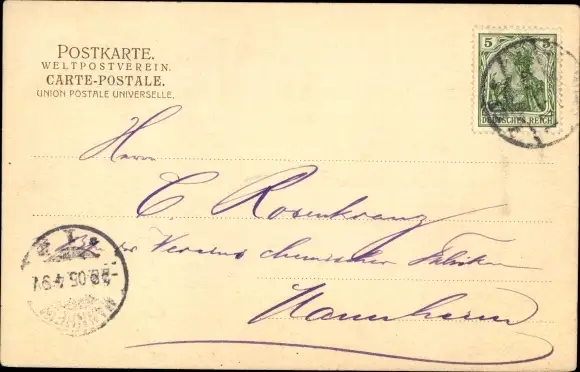 POSTKARTE.
WELTPOSTVEREIN.
CARTE-POSTALE.
UNION POSTALE UNIVERSELLE.
5 5
DEUTSCHES REICH
Herrn
C. Rosenkranz
der Vereins chemischer Fabriken
Mannheim
05.4-5